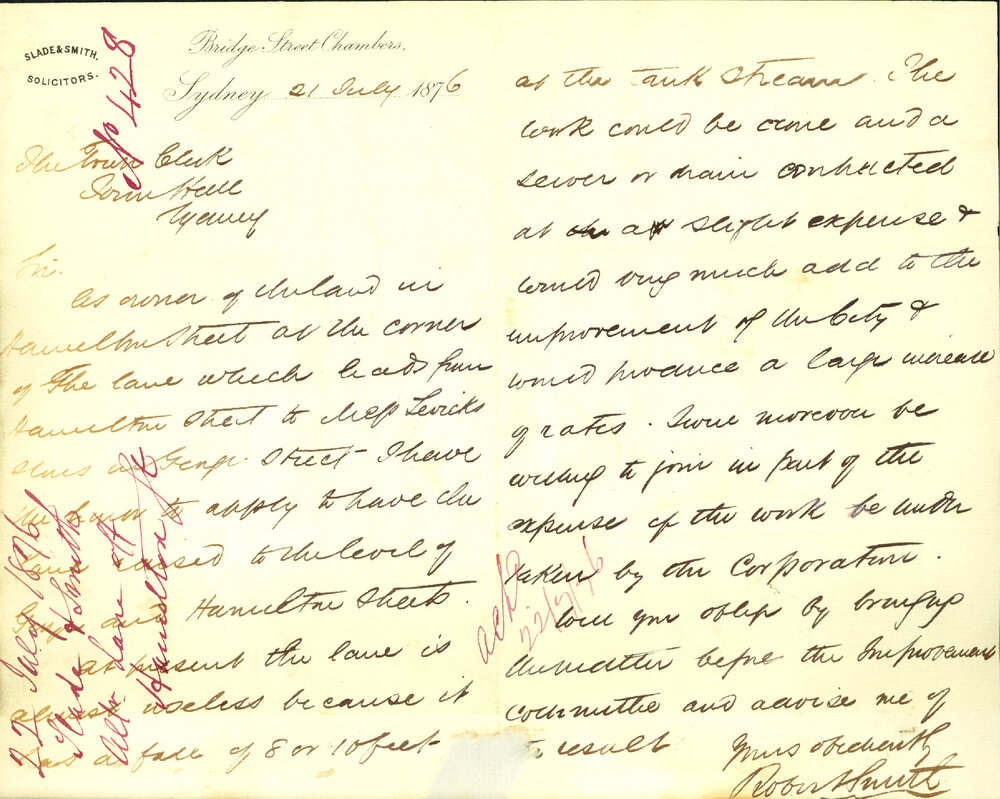 SLADE & SMITH.
SOLICITORS.
Bridge Street Chambers,
Sydney 21 July 1876
The Town Clerk
Town Hall
Sydney
Sir.
As owner of the land in
Hamilton Street at the corner
of The lane which leads from
Hamilton Street to Mess Levicks
Stores in George Street I have
the honor to apply to have the
lane raised to the level of
George and Hamilton Streets.
at present the lane is
almost useless because it
has a fall of 8 or 10 feet
at the tank stream. The
work could be done and a
sewer or drain contructed
at a slight expense &
would very much add to the
improvement of the City &
would produce a large increase
of rates. I wod moreover be
willing to join in part of the
expense of the work be under
taken by the Corporation.
Will you oblige by bringing
the matter before the Improvement
committee and advise me of
result
Yours obediently
Robert Smith
No 428
22 July 1876
Slade & Smith
Altn lane off
Hamilton St
ackd
22/7/76